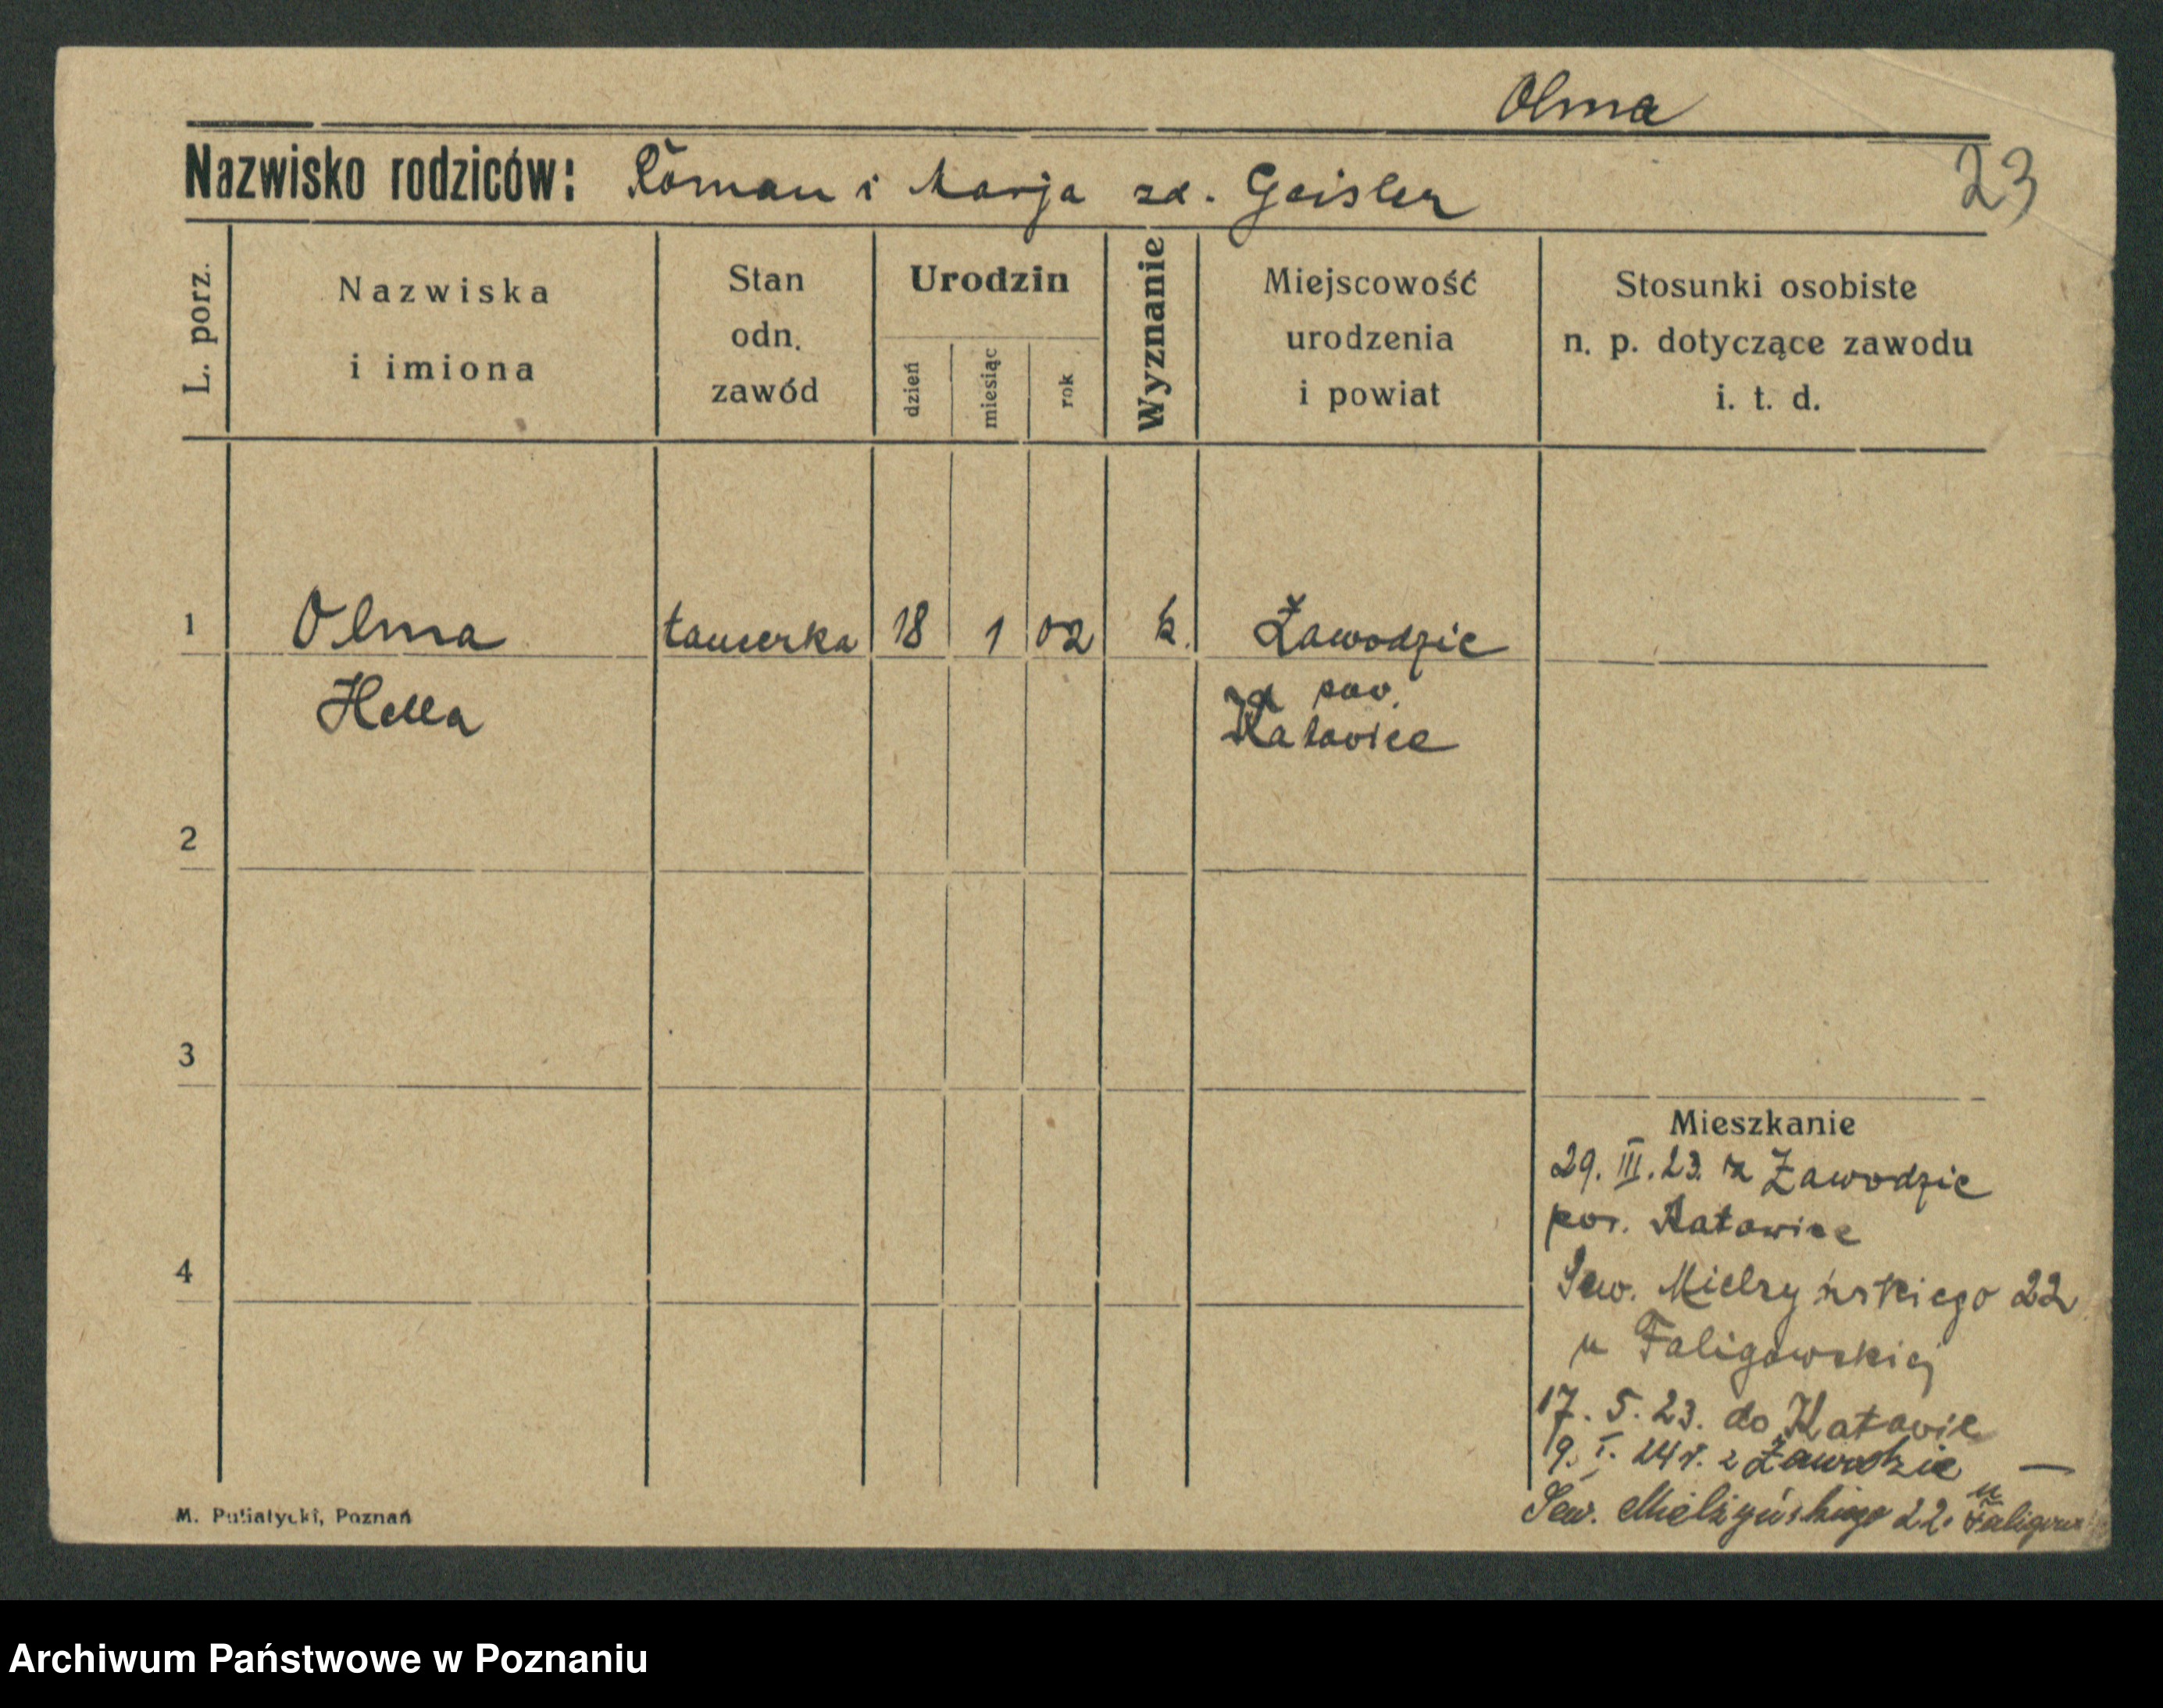 Olma
Nazwisko rodziców: Roman i Marja zd. Geisler
23
L. porz.
Nazwiska
i imiona
Stan
odn.
zawód
Urodzin
dzień
miesiąc
rok
Wyznanie
Miejscowość
urodzenia
i powiat
Stosunki osobiste
n. p. dotyczące zawodu
i. t. d.
1 Olma tancerka 18 1 02 k. Zawodzie
Hella pow.
Katowice
2
3
Mieszkanie
29. III. 23. z Zawodzie
pow. Katowice
4
Sew. Mielżyńskiego 22
u Faligowskiej
17. 5. 23. do Katowic
9. I. 24 r. z Zawodzie —
Sew. Mielżyńskiego 22. u
M. Putiatycki, Poznań
Archiwum Państwowe w Poznaniu